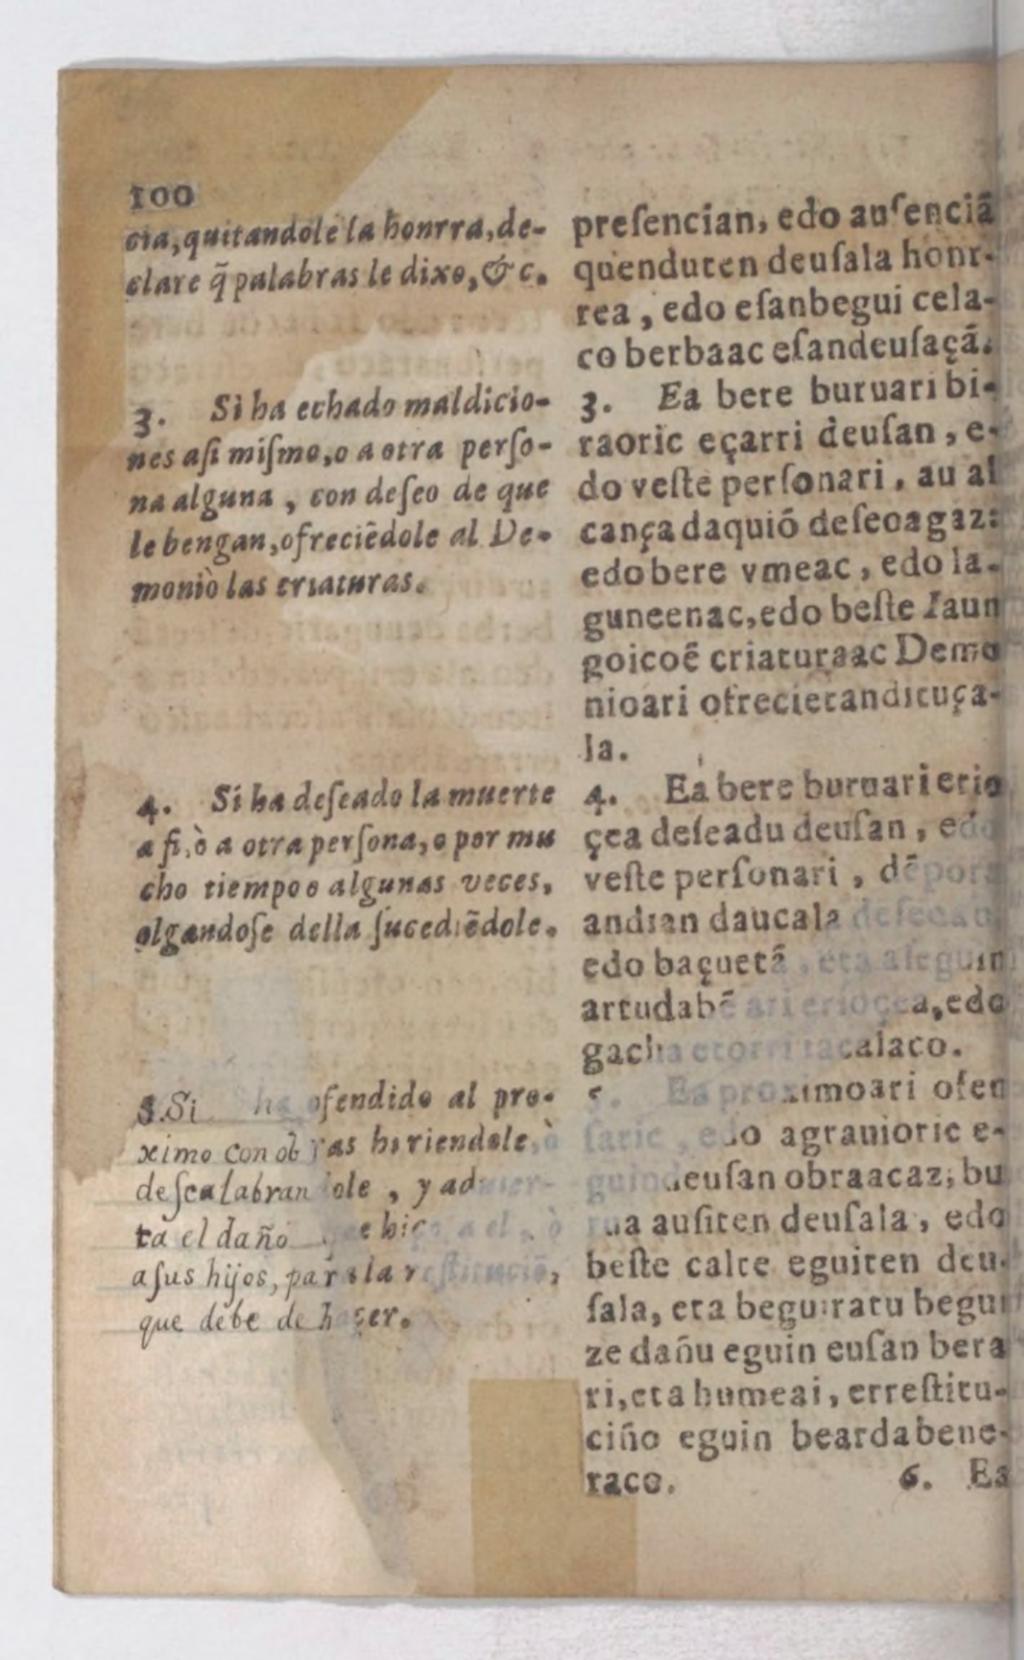 100
cia, quitandole la honrra, de-
clare q̃ palabras le dixo, &c.
3. Si ha echado maldicio-
nes asi miſmo, o a otra perſo-
na alguna, con deſeo de que
le bengan, ofreciẽdole al De-
monio las criaturas.
4. Si ha deſeado la muerte
a ſi, ò a otra perſona, o por mu
cho tiempo o algunas veces,
olgandoſe della ſucediẽdole.
5. Si ha ofendido al pro-
ximo con obras hiriendole, ò
deſcalabrandole, y aduier-
ta el daño que hiço a el, ò
aſus hijos, para la reſtituciõ,
que debe de haçer.
preſencian, edo auſenciã
quenduten deuſala honr-
rea, edo eſanbegui cela-
co berbaac eſandeuſaçã.
3. Ea bere buruari bi-
raoric eçarri deuſan, e-
do veſte perſonari, au al
cança daquiõ deſeoagaz:
edo bere vmeac, edo la-
guneenac, edo beſte Iaun
goicoẽ criaturaac Demo
nioari ofrecietandituça-
la.
4. Ea bere buruari erio
çea deſeadu deuſan, edo
veſte perſonari, dẽpora
andian daucala deſeoau,
edo baçuetã, eta aſeguin
artudabẽ ari erioçea, edo
gacha etorri jacalaco.
5. Ea proximoari ofen
ſaric, edo agrauioric e-
guindeuſan obraacaz, bu
rua auſiten deuſala, edo
beſte calte eguiten deu-
ſala, eta beguiratu begui
ze dañu eguin euſan bera
ri, eta humeai, erreſtitu-
ciño eguin bearda bene-
raco.
6. Ea